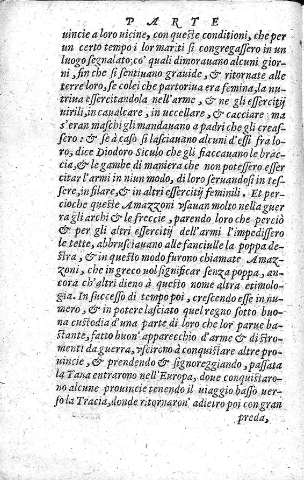 PARTE
uincie a loro uicine, con queste conditioni, che per
un certo tempo i lor mariti si congregassero in un
luogo segnalato, co' quali dimorauano alcuni gior
ni, fin che si sentiuano grauide, & ritornate alle
terre loro, se colei che partoriua era femina, la nu
triua essercitandola nell'arme, & ne gli essercitij
uirili, in caualcare, in uccellare, & cacciare ma
s'eran maschi gli mandauano a padri che gli creas
sero: & se à caso si lasciauano alcuni d'essi fra lo
ro, dice Diodoro Siculo che gli fiaccauano le brac
cia, & le gambe di maniera che non potessero esser
citar l'armi in niun modo, di loro seruandosi in tes
sere, in filare, & in altri essercitij feminili. Et per
cioche queste Amazzoni vsauan molto nella guer
ra gli archi & le freccie, parendo loro che perciò
& per gli altri essercitij dell'armi l'impedissero
le tette, abbrusciauano alle fanciulle la poppa de
stra, & in questo modo furono chiamate Amaz
zoni, che in greco uol significar senza poppa, an
cora ch'altri dieno à questo nome altra etimolo
gia. In successo di tempo poi, crescendo esse in nu
mero, & in potere lasciato quel regno sotto buo
na custodia d'una parte di loro che lor parue ba
stante, fatto buon' apparecchio d'arme & di stro
menti da guerra, vscirono à conquistare altre pro
uincie, & prendendo & signoreggiando, passata
la Tana entrarono nell'Europa, doue conquistaro
no alcune prouincie tenendo il uiaggio basso uer
so la Tracia, donde ritornaron' adietro poi con gran
preda,